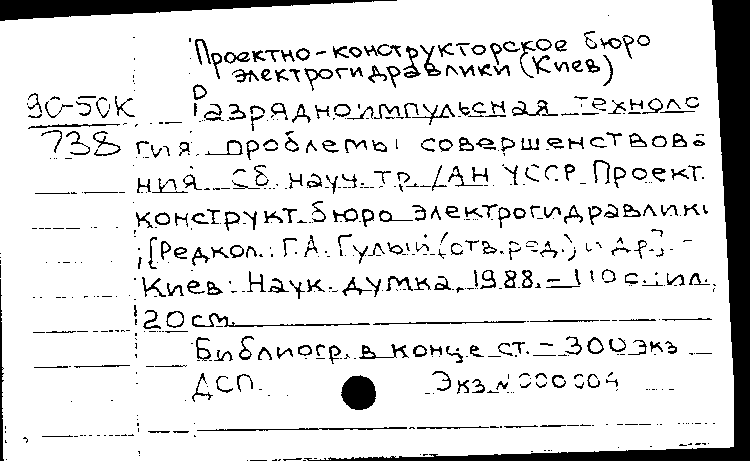 Проектно-конструкторское бюро
электрогидравлики (Киев)
90-50К Разрядноимпульсная техноло
738 гия проблемы совершенствова
ния Сб. науч. тр. /АН УССР Проект.
конструкт. бюро электрогидравлики
;[Редкол.: Г.А. Гулый (отв. ред.) и др.]. -
Киев: Наук. думка, 1988. - 110 с.: ил.,
20 см.
Библиогр. в конце ст. - 300 экз
ДСП. Экз. № 000004